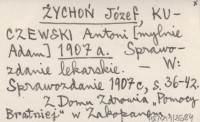 ŻYCHOŃ Józef, KU-
CZEWSKI Antoni [mylnie
Adam] 1907 a. Sprawo-
zdanie lekarskie. — W:
Sprawozdanie 1907 c, s. 36-42.
Z Domu Zdrowia "Pomocy
Bratniej" w Zakopanem.